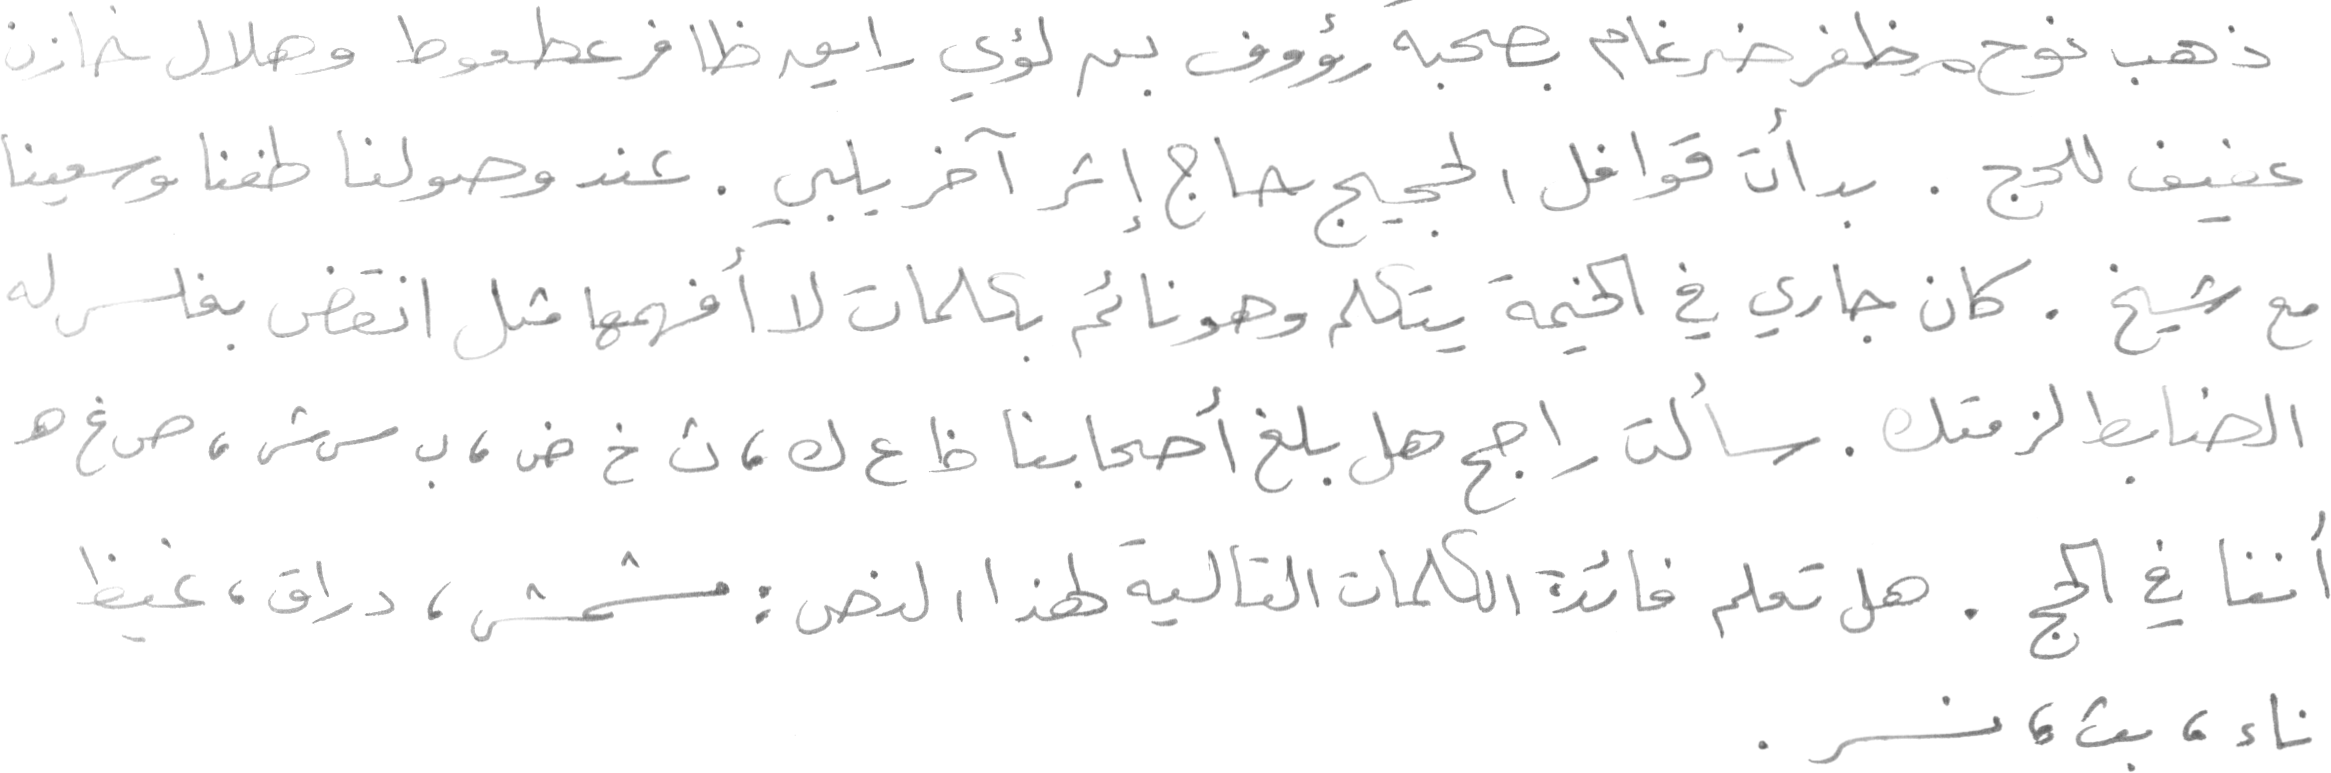 ذهب نوح مظفر ضرغام بصحبة رؤوف بن لؤي رايق ظافر عطعوط وهلال خازن
عفيف للحج . بدأت قوافل الحجيج حاج إثر آخر يلبي . عند وصولنا طفنا وسعينا
مع شيخ . كان جاري في الخيمة يتكلم وهو نائم بكلمات لا أفهمها مثل انقض بفلس له
الضابط لزمتك . سألت راجح هل بلغ أصحابنا ظ ع ك ، ث خ ض ، ب س ش ، ص غ ه
أننا في الحج . هل تعلم فائدة الكلمات التالية لهذا النص : مشمش ، دراق ، غيظ
ناء ، بث ، نسر .